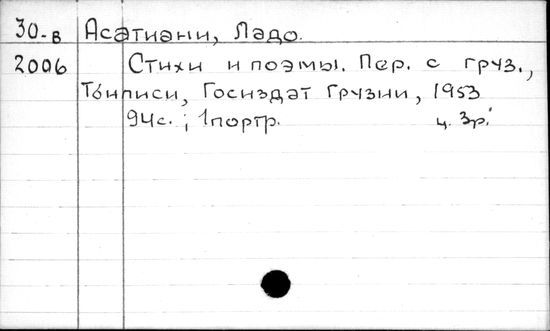 30-в Асатиани, Ладо.
2006 Стихи и поэмы. Пер. с груз.,
Тбилиси, Госиздат Грузии, 1953
94с.; 1портр. ц. 3р.